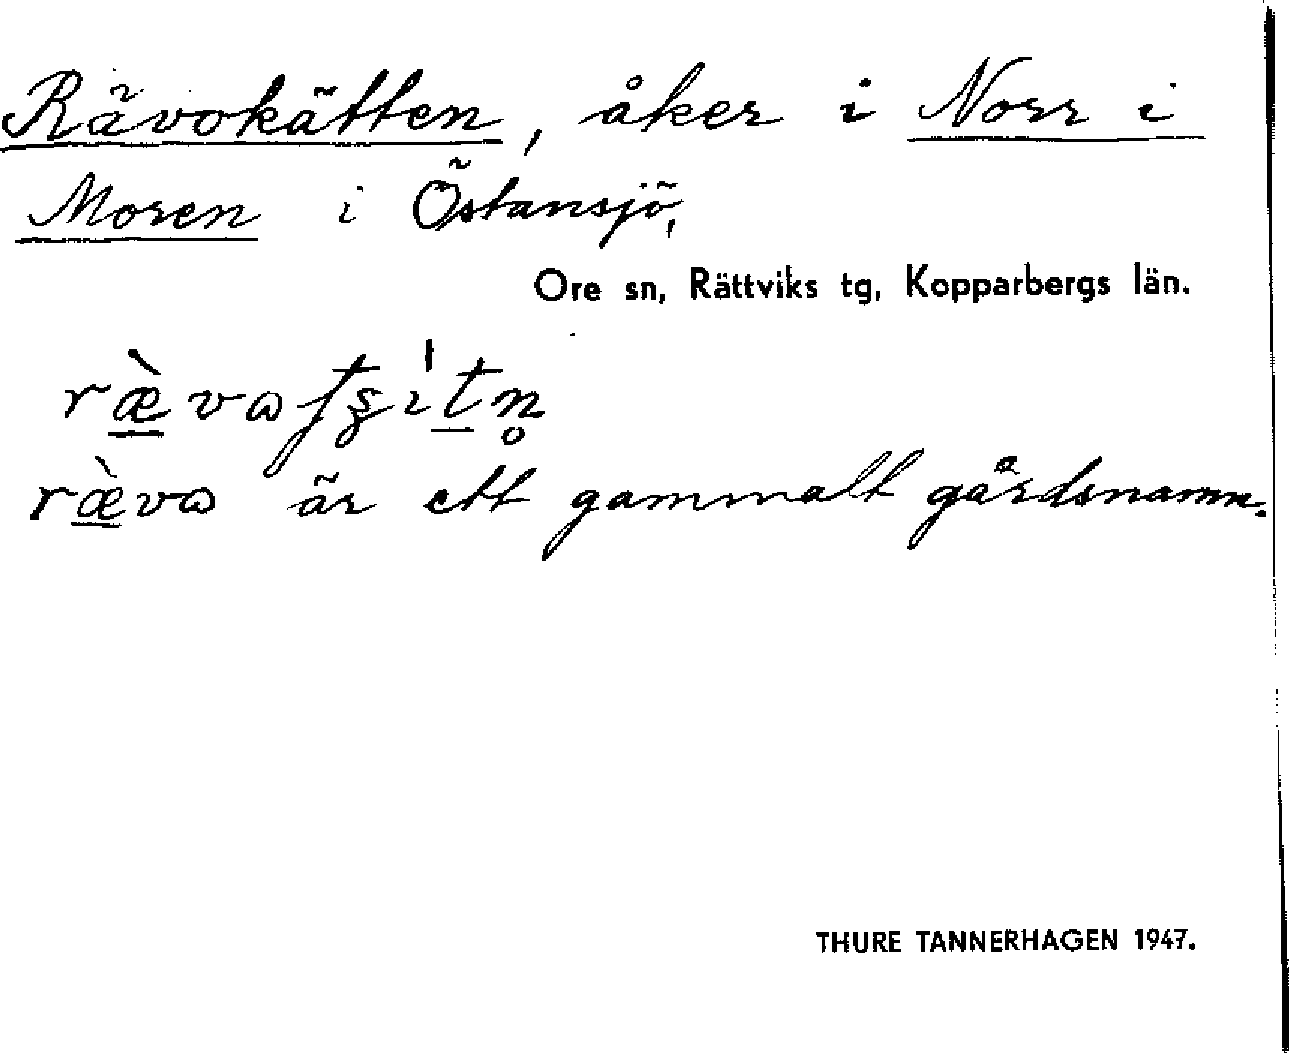 Rävokätten, åker i Norr i
Moren i Östansjö,
Ore sn, Rättviks tg, Kopparbergs län.
ræ̀vɷ
ræ̀vɷ är ett gammalt gårdsnamn.
THURE TANNERHAGEN 1947.